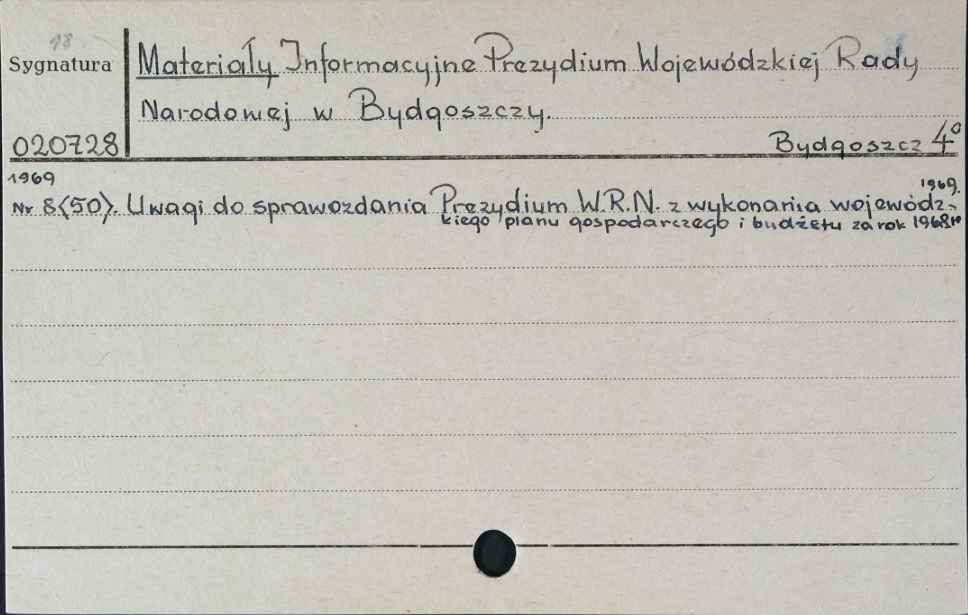 18
Sygnatura
Materiały Informacyjne Prezydium Wojewódzkiej Rady
Narodowej w Bydgoszczy.
020728
Bydgoszcz 4°
1969
1969.
Nr 8(50). Uwagi do sprawozdania Prezydium W.R.N. z wykonania wojewódz-
kiego planu gospodarczego i budżetu za rok 1968r.